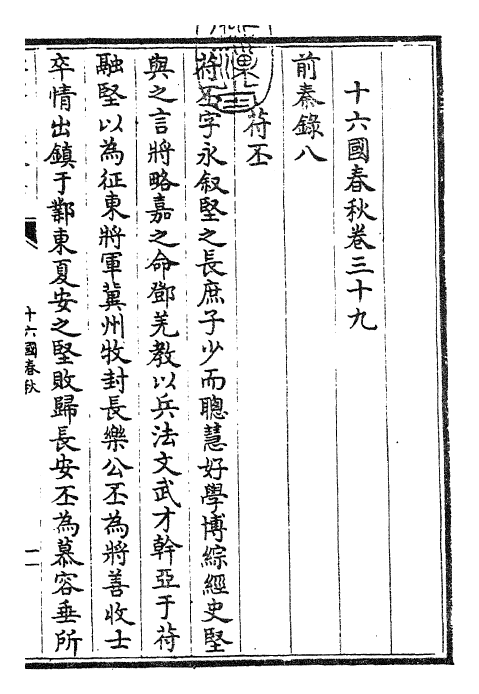 十六國春秋卷三十九
前秦錄八
苻丕
苻丕字永叙堅之長庶子少而聰慧好學博綜經史堅
與之言將略嘉之命鄧羌教以兵法文武才幹亞于苻
融堅以為征東將軍冀州牧封長樂公丕為將善收士
卒情出鎮于鄴東夏安之堅敗歸長安丕為慕容垂所
十六國春秋